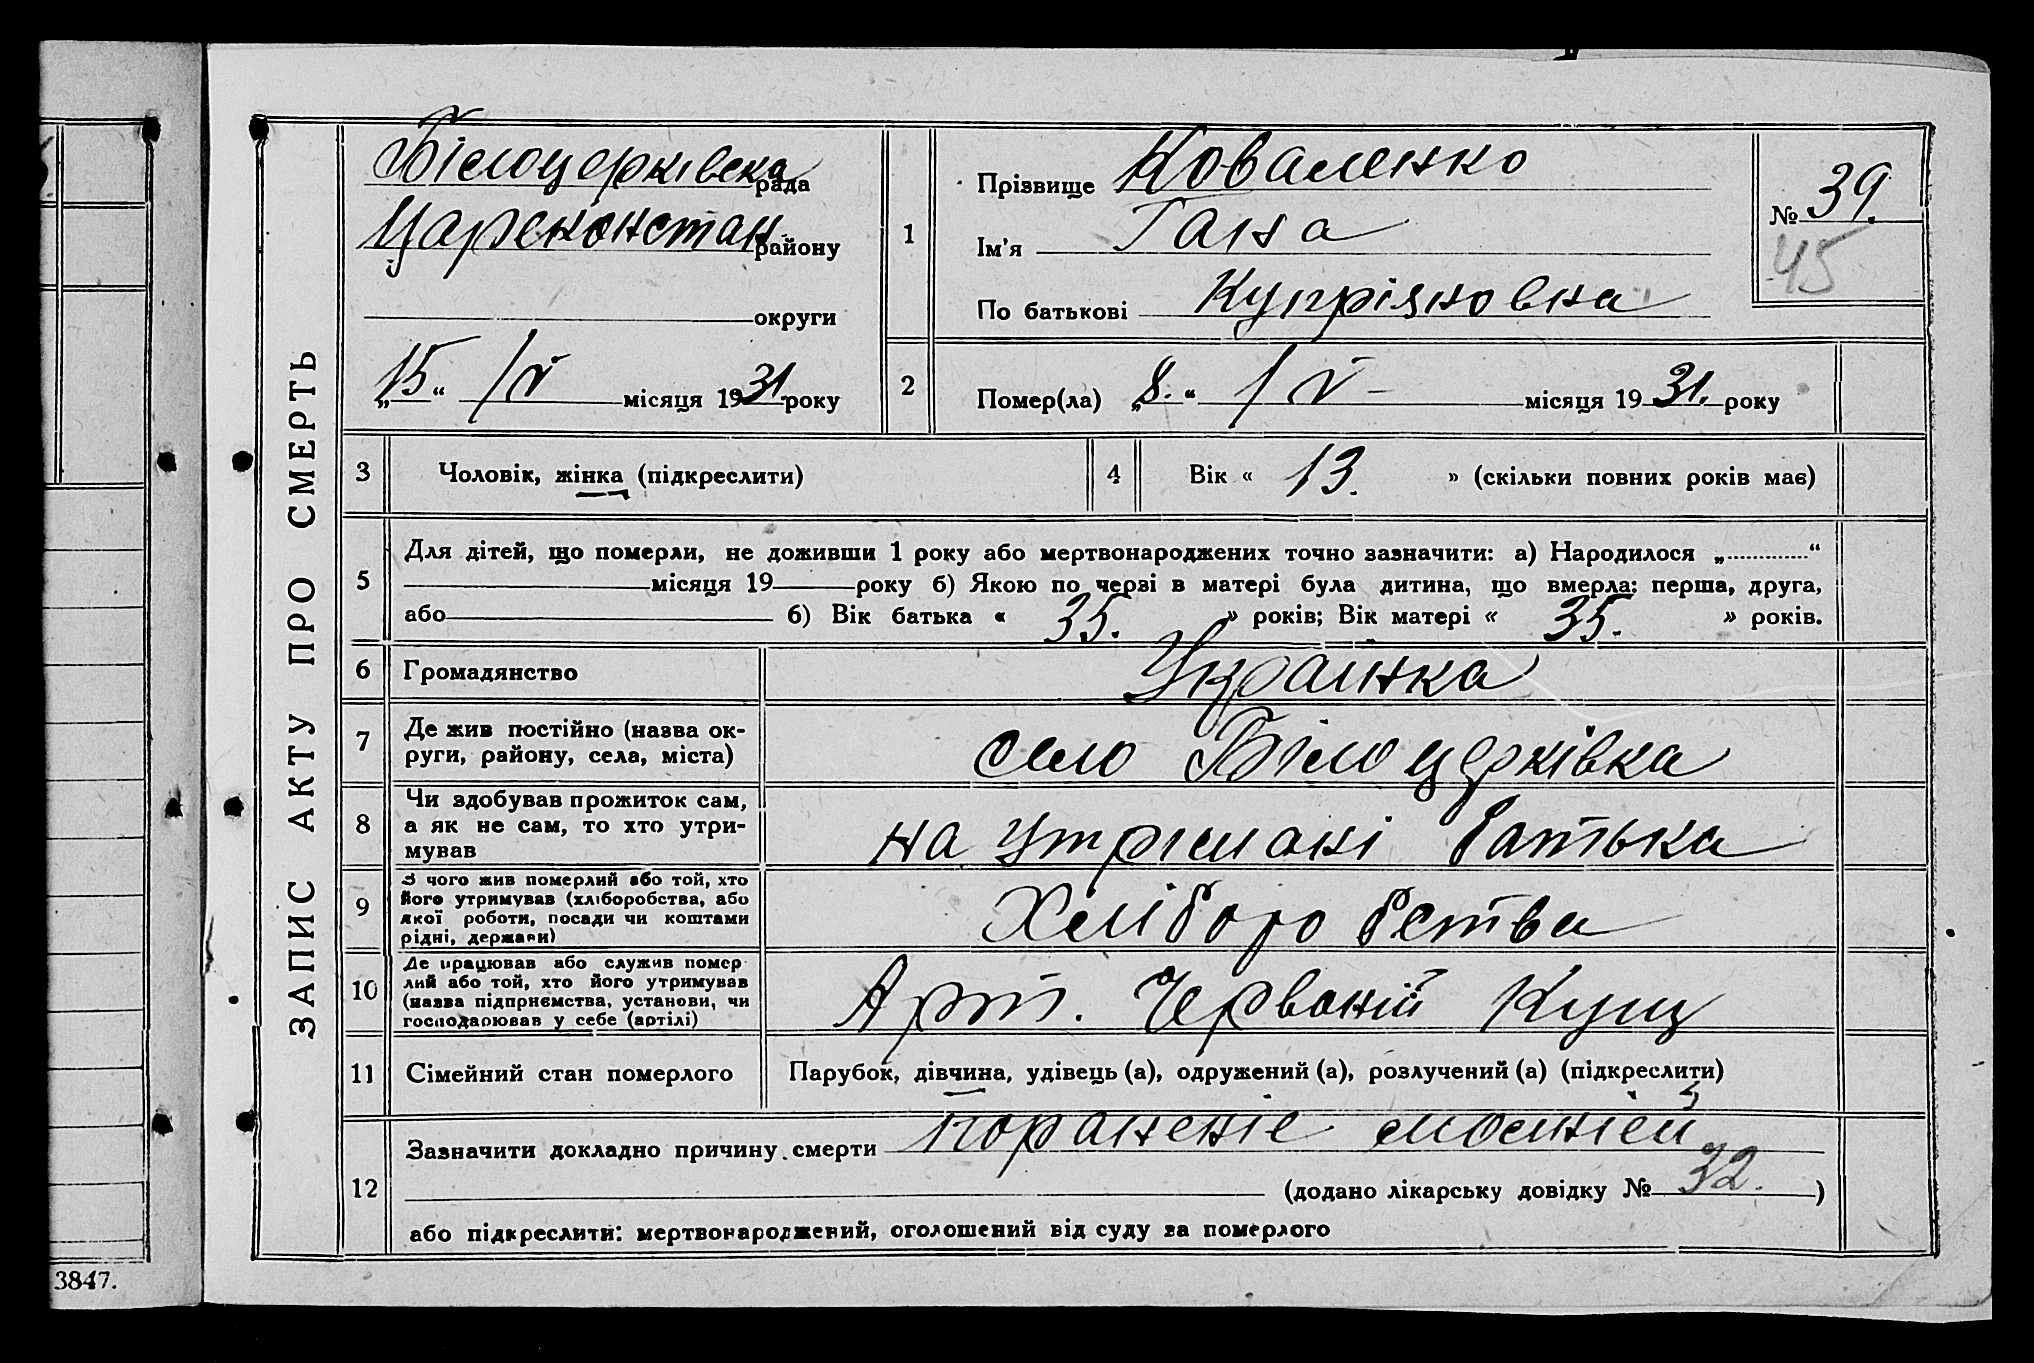 ЗАПИС АКТУ ПРО СМЕРТЬ
Білоцерківска рада
Цареконстан. району
округи
„15“ IV місяця 1931 року
1
Прізвище Коваленко
Ім'я Гана
По батькові Купріяновна
№ 39.
45
2
Помер(ла) „8.“ IV – місяця 1931. року
3 Чоловік, жінка (підкреслити)
4 Вік « 13. » (скільки повних років має)
5
Для дітей, що померли, не доживши 1 року або мертвонароджених точно зазначити: а) Народилося „.............“
місяця 19 року б) Якою по черзі в матері була дитина, що вмерла: перша, друга,
або б) Вік батька « 35. » років; Вік матері « 35. » років.
6 Громадянство Украинка
7 Де жив постійно (назва ок-
руги, району, села, міста)
село Білоцерківка
8 Чи здобував прожиток сам,
а як не сам, то хто утри-
мував
на утрімані батька
9 З чого жив померлий або той, хто
його утримував (хліборобства, або
якої роботи, посади чи коштами
рідні, держави)
Хліборобства
10 Де працював або служив помер
лий або той, хто його утримував
(назва підприємства, установи, чи
господарював у себе (артілі)
Арт. Червоній Кущ
11 Сімейний стан померлого
Парубок, дівчина, удівець (а), одружений (а), розлучений (а) (підкреслити)
12
Зазначити докладно причину смерти пораненіе молніей
(додано лікарську довідку № 32. )
або підкреслити: мертвонароджений, оголошений від суду за померлого
3847.